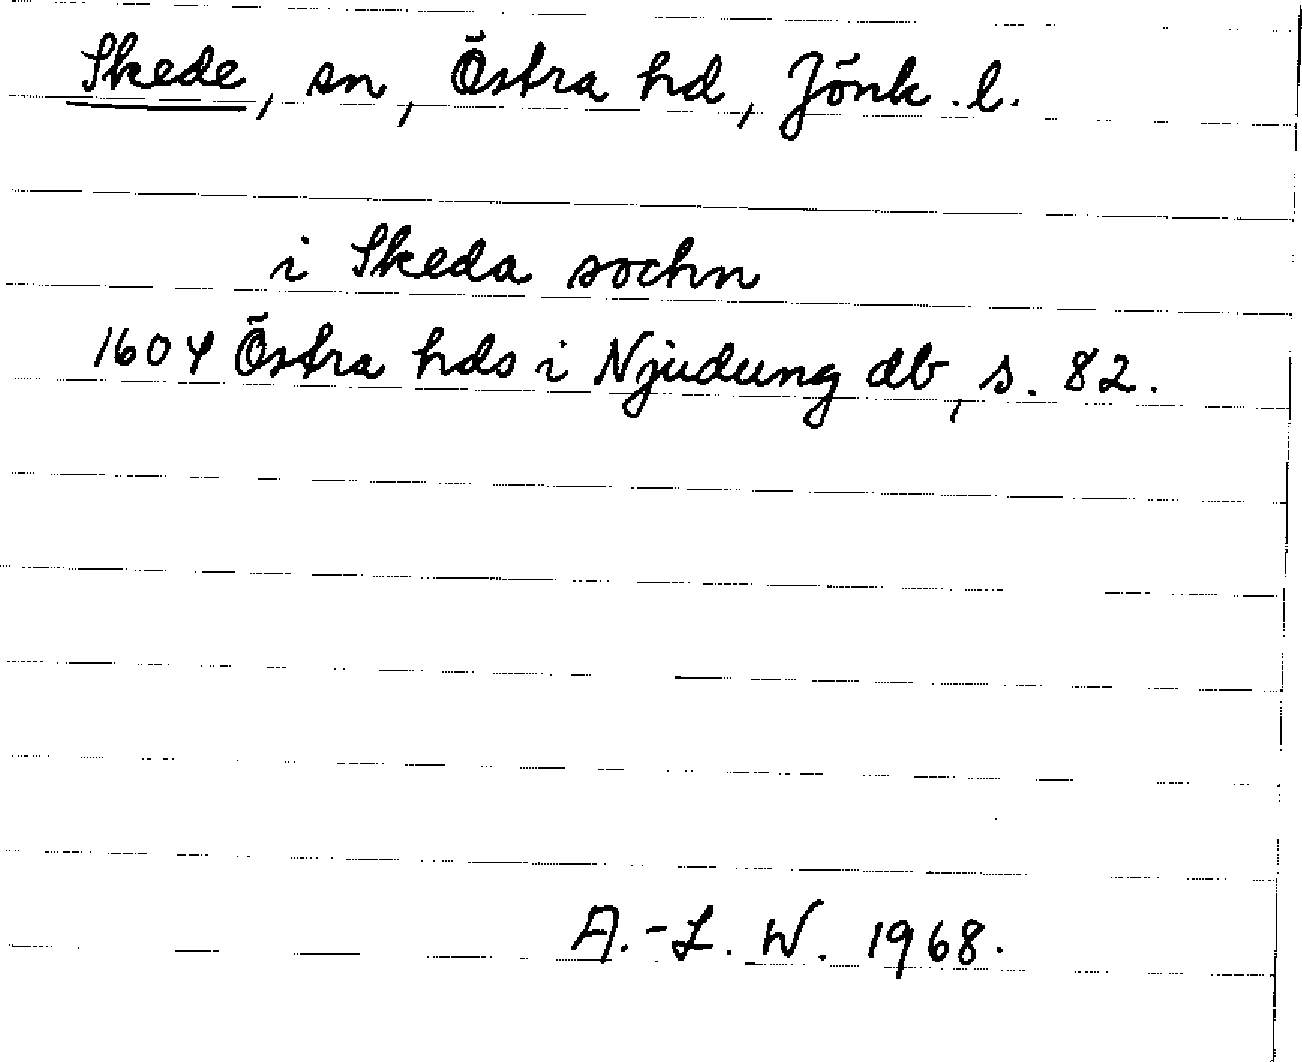 Skede, sn, Östra hd, Jönk. l.
i Skeda sochn
1604 Östra hds i Njudung db, s. 82.
A.-L. W. 1968.